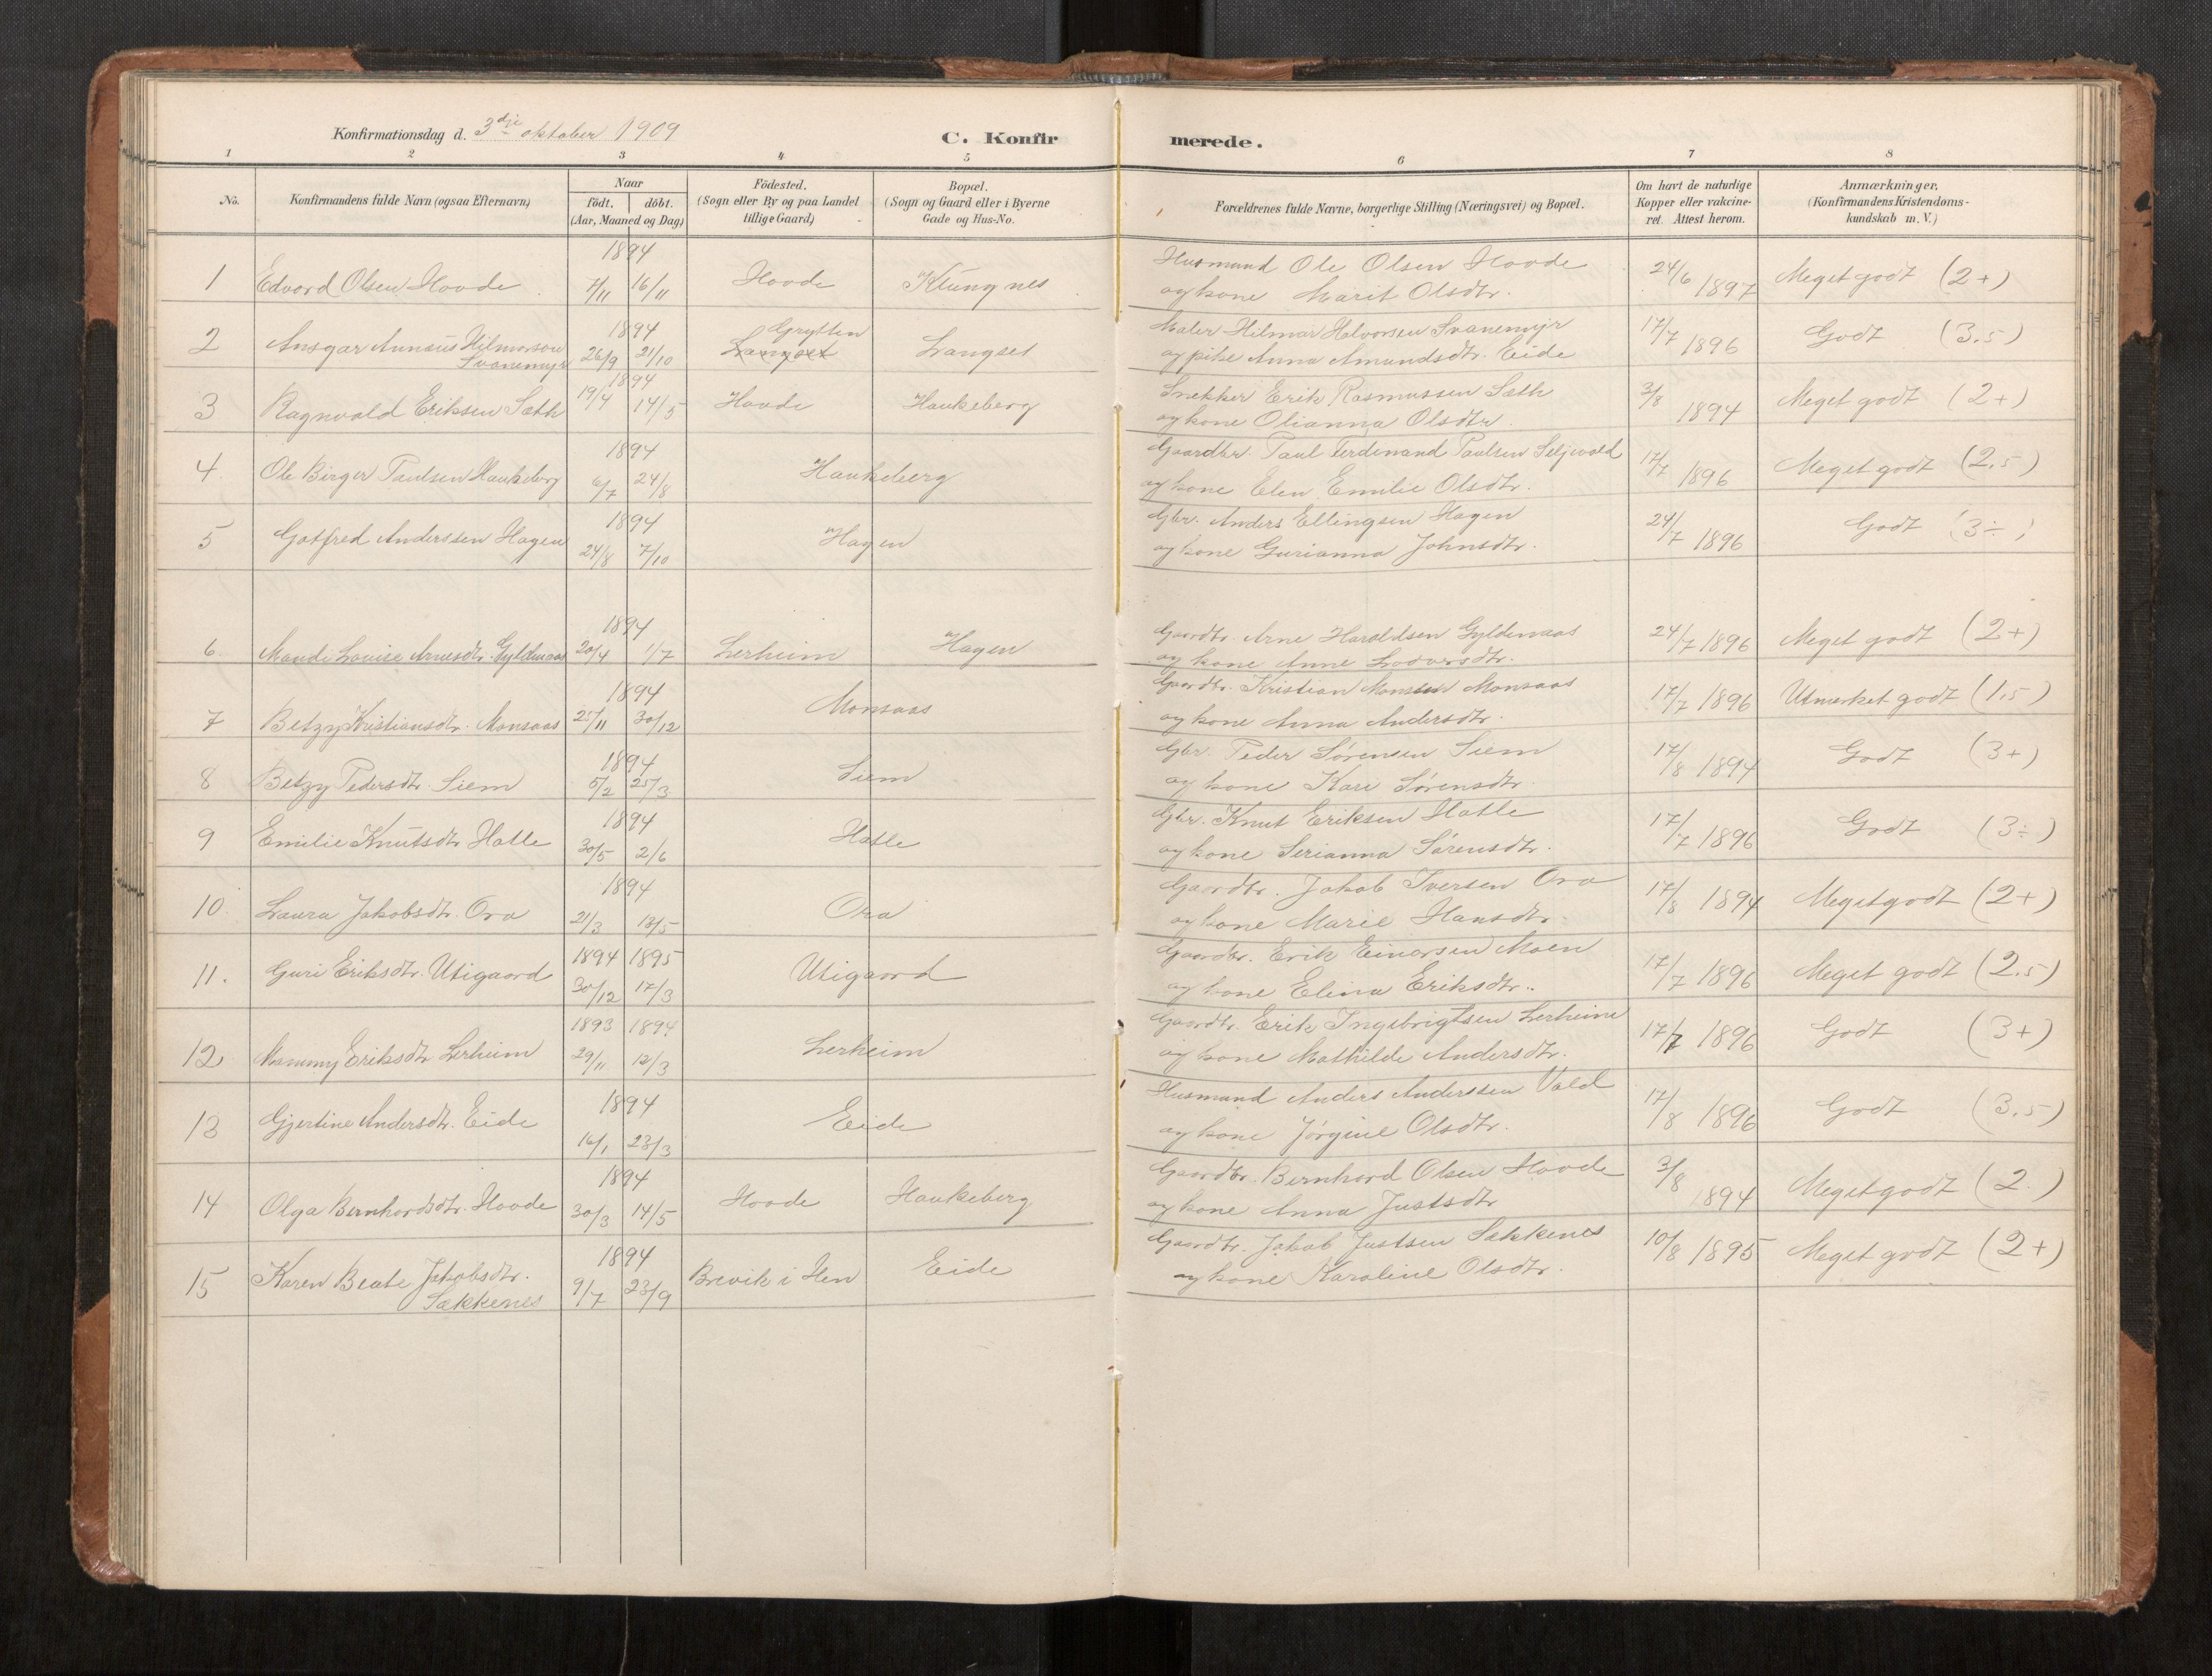 Konfirmationsdag d. 3dje oktober 1909
C. Konfirmerede.
1 2 3 4 5 6 7 8
No.
Konfirmandens fulde Navn (ogsaa Efternavn)
Naar
födt. döbt.
(Aar, Maaned og Dag)
Födested.
(Sogn eller By og paa Landet
tillige Gaard)
Bopæl.
(Sogn og Gaard eller i Byerne
Gade og Hus-No.
Forældrenes fulde Navne, borgerlige Stilling (Næringsvei) og Bopæl.
Om havt de naturlige
Kopper eller vakcine-
ret. Attest herom.
Anmærkninger,
(Konfirmandens Kristendoms-
kundskab m. V.)
1894
1 Edvard Olsen Hovde 7/11 16/11 Hovde Klungnes
Husmand Ole Olsen Hovde
og kone Marit Olsdtr. 24/6 1897 Meget godt (2+)
1894 Grytten
2 Ansgar Annæus Hilmarsen
Svanemyr 26/9 21/10 Langset Langset
Maler Hilmar Halvorsen Svanemyr
og pike Anna Amundsdtr. Eide 17/7 1896 Godt (3.5)
1894
3 Ragnvald Eriksen Sæth 19/4 14/5 Hovde Haukeberg
Snekker Erik Rasmussen Sæth
og kone Olianna Olsdtr. 3/8 1894 Meget godt (2+)
1894
4. Ole Birger Paulsen Haukeberg 6/7 24/8 Haukeberg
Gaardbr. Paul Ferdinand Paulsen Seljevold
og kone Elen Emilie Olsdtr. 17/7 1896 Meget godt (2,5)
1894
5 Gotfred Anderssen Hagen 24/8 7/10 Hagen
Gbr. Anders Ellingsen Hagen
og kone Gurianna Johnsdtr. 24/7 1896 Godt (3÷)
1894
6. Maudi Louise Arnesdtr. Gyldenaas 20/4 1/7 Lerheim Hagen
Gaardbr. Arne Haraldsen Gyldenaas
og kone Anne Lodversdtr. 24/7 1896 Meget godt (2+)
1894
7 Betzy Kristiansdtr. Monsaas 25/11 30/12 Monsaas
Gaardbr. Kristian Monsen Monsaas
og kone Anna Andersdtr. 17/7 1896 Utmerket godt (1,5)
1894
8 Betzy Pedersdtr. Siem 5/2 25/3 Siem
Gbr. Peder Sørensen Siem
og kone Kari Sørensdtr. 17/8 1894 Godt (3+)
1894
9 Emilie Knutsdtr. Hatle 30/5 2/6 Hatle
Gbr. Knut Eriksen Hatle
og kone Serianna Sørensdtr. 17/7 1896 Godt (3÷)
1894
10. Laura Jakobsdtr. Ora 21/3 13/5 Ora
Gaardbr. Jakob Iversen Ora
og kone Marie Hansdtr. 17/8 1894 Meget godt (2+)
1894 1895
11. Guri Eriksdtr. Utigaard 30/12 17/3 Utigaard
Gaardbr. Erik Einarsen Moen
og kone Elina Eriksdtr. 17/7 1896 Meget godt (2.5)
1893 1894
12 Mammy Eriksdtr. Lerheim 29/11 12/3 Lerheim
Gaardbr. Erik Ingebrigtsen Lerheim
og kone Mathilde Andersdtr. 17/7 1896 Godt (3+)
1894
13 Gjertine Andersdtr. Eide 16/1 23/3 Eide
Husmand Anders Anderssen Vold
og kone Jørgine Olsdtr. 17/8 1896 Godt (3.5)
1894
14 Olga Bernhardsdtr. Hovde 30/3 14/5 Hovde Haukeberg
Gaardbr. Bernhard Olsen Hovde
og kone Anna Justsdtr 3/8 1894 Meget godt (2.)
1894
15 Karen Beate Jakobsdtr.
Sækkenes 9/7 23/9 Brevik i Hen Eide
Gaardbr. Jakob Justsen Sækkenes
og kone Karoline Olsdtr. 10/8 1895 Meget godt (2+)